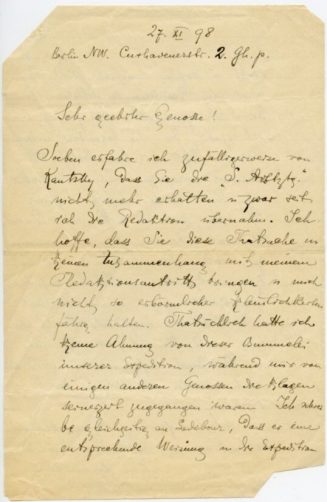 27. XI 98
Berlin NW. Cuxhavenerstr. 2. Gh. p.
Sehr geehrter Genosse!
Soeben erfahre ich zufälligerweise von
Kautsky, dass Sie die „S. Arbtztg"
nicht mehr erhalten u zwar seit
ich die Redaktion übernahm. Ich
hoffe, dass Sie diese Thatsache in
keinen Zusammenhang mit meinem
Redaktionsantritt bringen u mich
nicht so erbärmlicher Kleinlichkeiten
fähig halten. Thatsächlich hatte ich
keine Ahnung von dieser Bummelei
unserer Expedition, während mir von
einigen anderen Genossen die Klagen
seinerzeit zugegangen waren. Ich schrei
be gleichzeitig an Ledebour, dass er eine
entsprechende Weisung in der Expedition